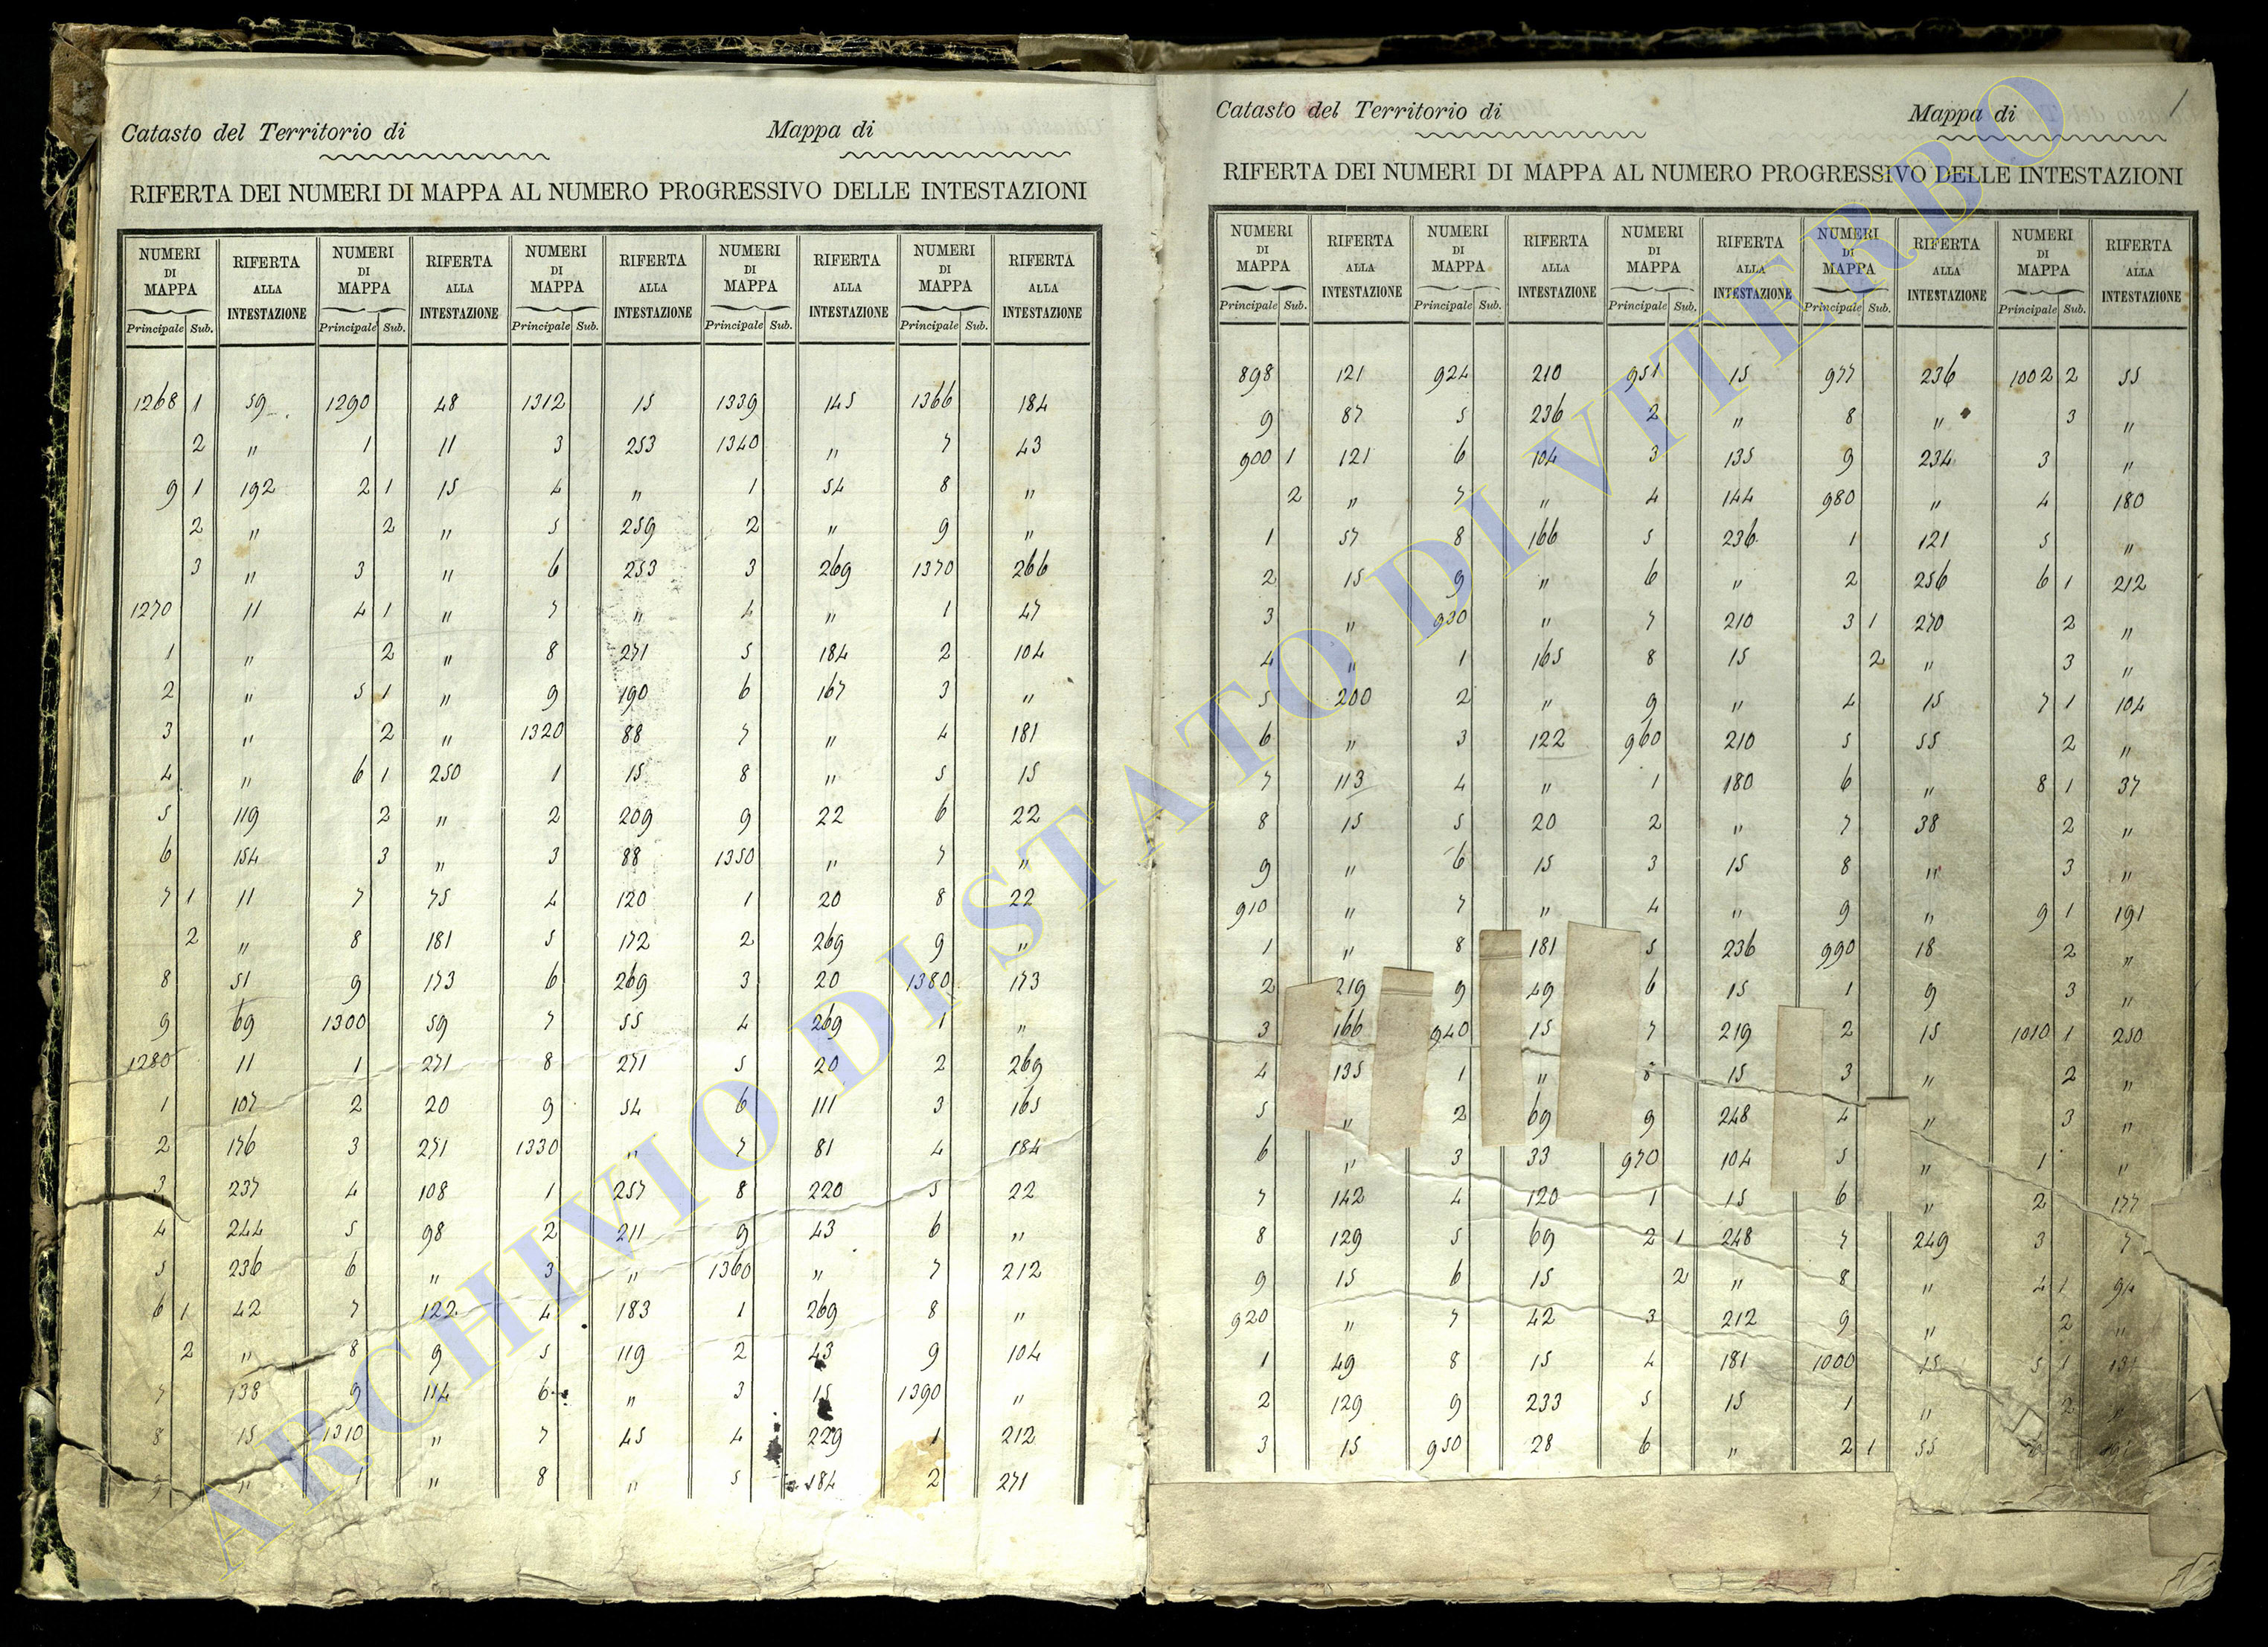 Catasto del Territorio di Mappa di
RIFERTA DEI NUMERI DI MAPPA AL NUMERO PROGRESSIVO DELLE INTESTAZIONI
NUMERI DI MAPPA RIFERTA ALLA INTESTAZIONE NUMERI DI MAPPA RIFERTA ALLA INTESTAZIONE NUMERI DI MAPPA RIFERTA ALLA INTESTAZIONE NUMERI DI MAPPA RIFERTA ALLA INTESTAZIONE NUMERI DI MAPPA RIFERTA ALLA INTESTAZIONE
Principale Sub. Principale Sub. Principale Sub. Principale Sub. Principale Sub.
1268 1 59 1290 48 1312 15 1339 145 1366 184
2 " 1 11 3 253 1340 " 7 43
9 1 192 2 1 15 4 " 1 54 8 "
2 " 2 " 5 259 2 " 9 "
3 " 3 " 6 253 3 269 1370 266
1270 11 4 1 " 7 " 4 " 1 47
1 " 2 " 8 271 5 184 2 104
2 " 5 1 " 9 190 6 167 3 "
3 " 2 " 1320 88 7 " 4 181
4 " 6 1 250 1 15 8 " 5 15
5 119 2 " 2 209 9 22 6 22
6 154 3 " 3 88 1350 " 7 "
7 1 11 7 75 4 120 1 20 8 22
2 " 8 181 5 172 2 269 9 "
8 51 9 173 6 269 3 20 1380 173
9 69 1300 59 7 55 4 269 1 "
1280 11 1 271 8 271 5 20 2 269
1 107 2 20 9 54 6 111 3 165
2 176 3 271 1330 " 7 81 4 184
3 237 4 108 1 257 8 220 5 22
4 244 5 98 2 211 9 43 6 "
5 236 6 " 3 " 1360 " 7 212
6 1 42 7 122 4 183 1 269 8 "
2 " 8 9 5 119 2 43 9 104
7 138 9 114 6 " 3 15 1390 "
8 15 1310 " 7 45 4 229 1 212
9 " 1 " 8 " 5 184 2 271
1
Catasto del Territorio di Mappa di
RIFERTA DEI NUMERI DI MAPPA AL NUMERO PROGRESSIVO DELLE INTESTAZIONI
NUMERI DI MAPPA RIFERTA ALLA INTESTAZIONE NUMERI DI MAPPA RIFERTA ALLA INTESTAZIONE NUMERI DI MAPPA RIFERTA ALLA INTESTAZIONE NUMERI DI MAPPA RIFERTA ALLA INTESTAZIONE NUMERI DI MAPPA RIFERTA ALLA INTESTAZIONE
Principale Sub. Principale Sub. Principale Sub. Principale Sub. Principale Sub.
898 121 924 210 951 15 977 236 1002 2 55
9 87 5 236 2 " 8 " 3 "
900 1 121 6 104 3 135 9 234 3 "
2 " 7 " 4 144 980 " 4 180
1 57 8 166 5 236 1 121 5 "
2 15 9 " 6 " 2 256 6 1 212
3 " 930 " 7 210 3 1 270 2 "
4 " 1 165 8 15 2 " 3 "
5 200 2 " 9 " 4 15 7 1 104
6 " 3 122 960 210 5 55 2 "
7 113 4 " 1 180 6 " 8 1 37
8 15 5 20 2 " 7 38 2 "
9 " 6 15 3 15 8 " 3 "
910 " 7 " 4 " 9 " 9 1 191
1 " 8 181 5 236 990 18 2 "
2 219 9 49 6 15 1 9 3 "
3 166 940 15 7 219 2 15 1010 1 250
4 135 1 " 8 15 3 " 2 "
5 " 2 69 9 248 4 " 3 "
6 " 3 33 970 104 5 " 1 "
7 142 4 120 1 15 6 " 2 177
8 129 5 69 2 1 248 7 249 3
9 15 6 15 2 " 8 " 4 1
920 " 7 42 3 212 9 " 2 "
1 49 8 15 4 181 1000 15 5 1
2 129 9 233 5 15 1 " 2 "
3 15 950 28 6 " 2 1 55
ARCHIVIO DI STATO DI VITERBO